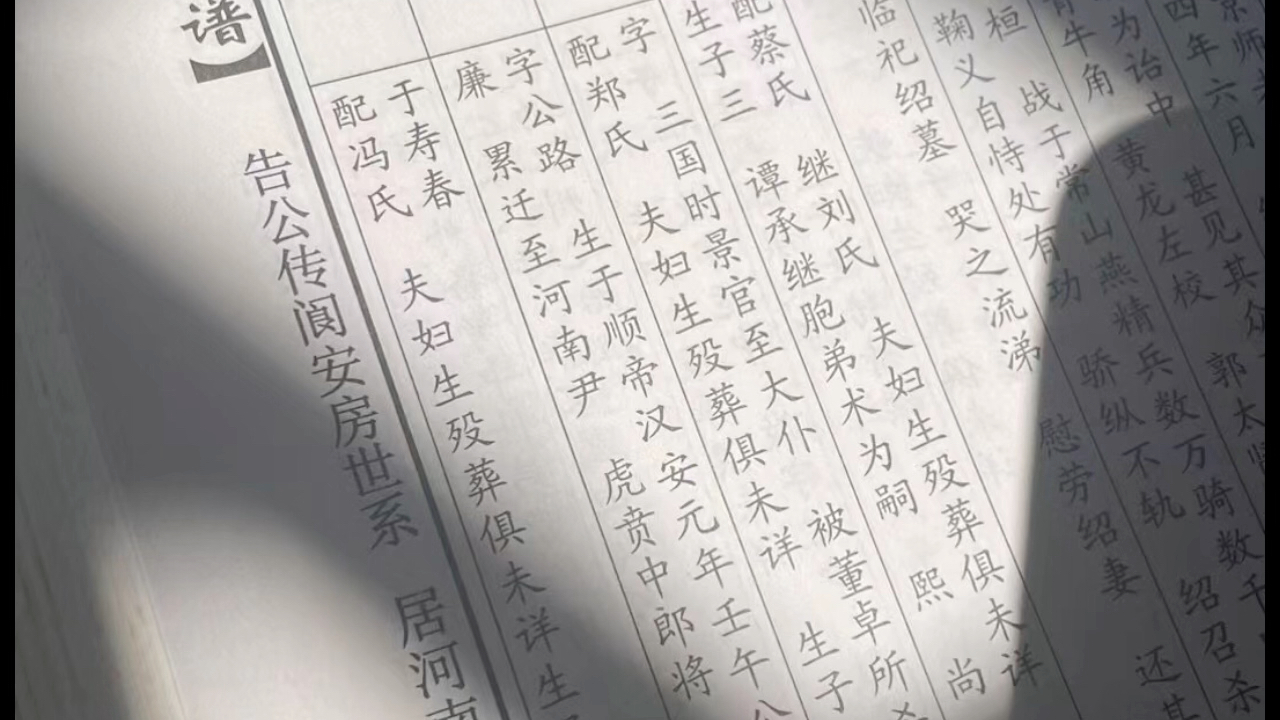 京师
四年六月
为诒中 甚见其众
牛角 黄龙左校 郭太
桓 战于常山 燕精兵数万骑数千
鞠义自恃处有功 骄纵不轨 绍召杀
临祀绍墓 哭之流涕 慰劳绍妻 还其
配蔡氏 继刘氏 夫妇生殁葬俱未详
生子三 谭承继胞弟术为嗣 熙 尚
字 三国时景官至大仆 被董卓所
配郑氏 夫妇生殁葬俱未详 生子
字公路 生于顺帝汉安元年壬午
廉 累迁至河南尹 虎贲中郎将
于寿春
配冯氏 夫妇生殁葬俱未详生
谱】
告公传阆安房世系 居河南